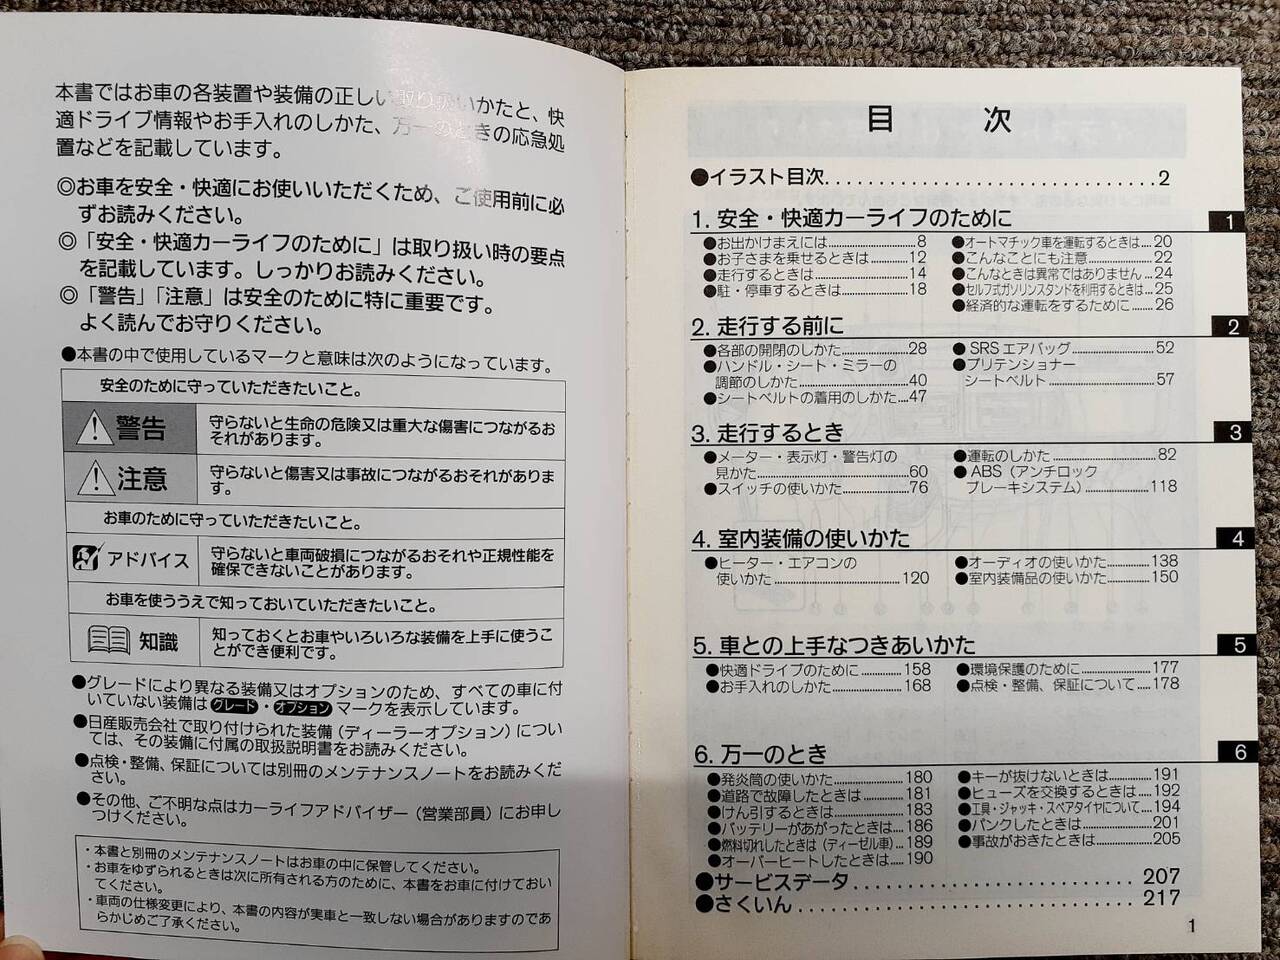 本書ではお車の各装置や装備の正しい取り扱いかたと、快
適ドライブ情報やお手入れのしかた、万一のときの応急処
置などを記載しています。
◎お車を安全・快適にお使いいただくため、ご使用前に必
ずお読みください。
◎「安全・快適カーライフのために」は取り扱い時の要点
を記載しています。しっかりお読みください。
◎「警告」「注意」は安全のために特に重要です。
よく読んでお守りください。
●本書の中で使用しているマークと意味は次のようになっています。
安全のために守っていただきたいこと。
警告 守らないと生命の危険又は重大な傷害につながるお
それがあります。
注意 守らないと傷害又は事故につながるおそれがありま
す。
お車のために守っていただきたいこと。
アドバイス 守らないと車両破損につながるおそれや正規性能を
確保できないことがあります。
お車を使ううえで知っておいていただきたいこと。
知識 知っておくとお車やいろいろな装備を上手に使うこ
とができ便利です。
●グレードにより異なる装備又はオプションのため、すべての車に付
いていない装備はグレード・オプションマークを表示しています。
●日産販売会社で取り付けられた装備（ディーラーオプション）につい
ては、その装備に付属の取扱説明書をお読みください。
●点検・整備、保証については別冊のメンテナンスノートをお読みくだ
さい。
●その他、ご不明な点はカーライフアドバイザー（営業部員）にお申し
つけください。
・本書と別冊のメンテナンスノートはお車の中に保管してください。
・お車をゆずられるときは次に所有される方のために、本書をお車に付けておい
てください。
・車両の仕様変更により、本書の内容が実車と一致しない場合がありますのであ
らかじめご了承ください。
目 次
●イラスト目次................................2
1. 安全・快適カーライフのために 1
●お出かけまえには......................8
●お子さまを乗せるときは..........12
●走行するときは......................14
●駐・停車するときは................18
●オートマチック車を運転するときは....20
●こんなことにも注意................22
●こんなときは異常ではありません...24
●セルフ式ガソリンスタンドを利用するときは...25
●経済的な運転をするために......26
2. 走行する前に 2
●各部の開閉のしかた................28
●ハンドル・シート・ミラーの
調節のしかた..........................40
●シートベルトの着用のしかた...47
●SRSエアバッグ......................52
●プリテンショナー
シートベルト..........................57
3. 走行するとき 3
●メーター・表示灯・警告灯の
見かた....................................60
●スイッチの使いかた................76
●運転のしかた..........................82
●ABS（アンチロック
ブレーキシステム）................118
4. 室内装備の使いかた 4
●ヒーター・エアコンの
使いかた..............................120
●オーディオの使いかた..........138
●室内装備品の使いかた..........150
5. 車との上手なつきあいかた 5
●快適ドライブのために..........158
●お手入れのしかた................168
●環境保護のために................177
●点検・整備、保証について.....178
6. 万一のとき 6
●発炎筒の使いかた................180
●道路で故障したときは..........181
●けん引するときは................183
●バッテリーがあがったときは....186
●燃料切れしたときは（ディーゼル車）...189
●オーバーヒートしたときは.....190
●キーが抜けないときは..........191
●ヒューズを交換するときは.....192
●工具・ジャッキ・スペアタイヤについて...194
●パンクしたときは................201
●事故がおきたときは.............205
●サービスデータ..........................207
●さくいん................................217
1